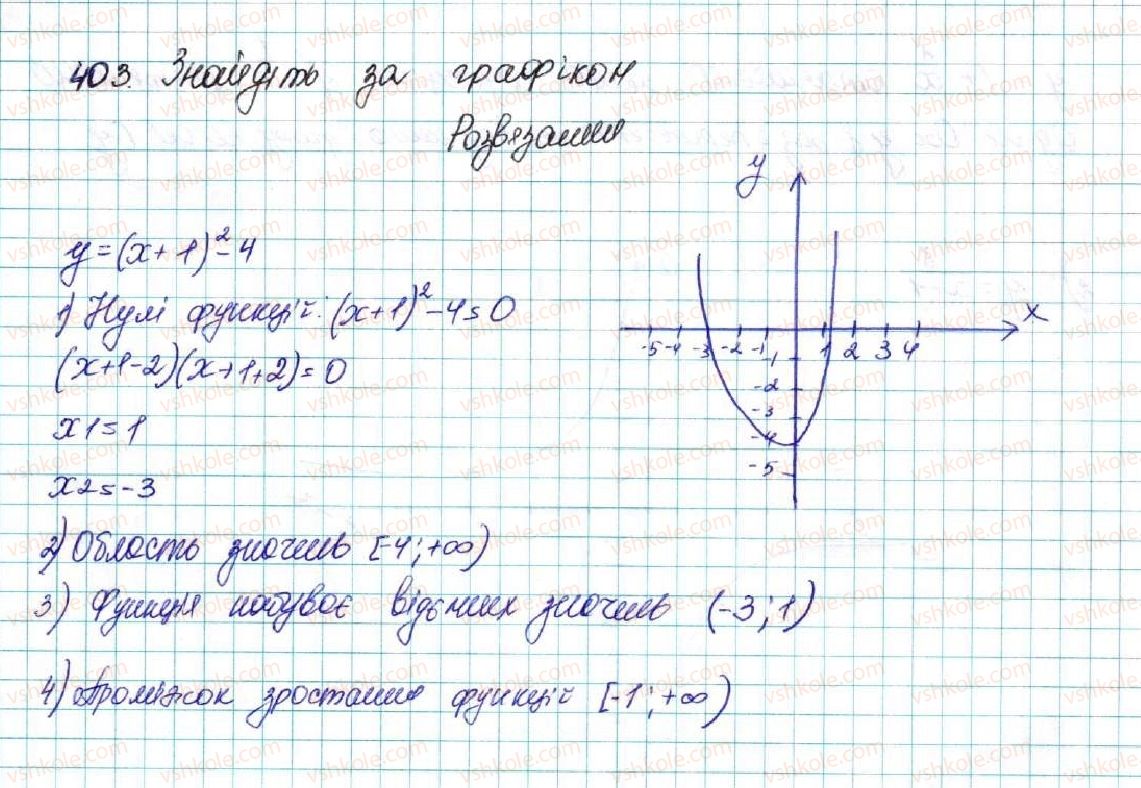 403. Знайдіть за графіком
Розвязання
y=(x+1)²-4
1) Нулі функцій: (x+1)²-4=0
(x+1-2)(x+1+2)=0
x1=1
x2=-3
2) Область значень [-4;+∞)
3) Функція набуває відємних значень (-3;1)
4) Проміжок зростання функцій [-1;+∞)
y
x
-5 -4 -3 -2 -1 1 2 3 4
-1
-2
-3
-4
-5
vshkole.com